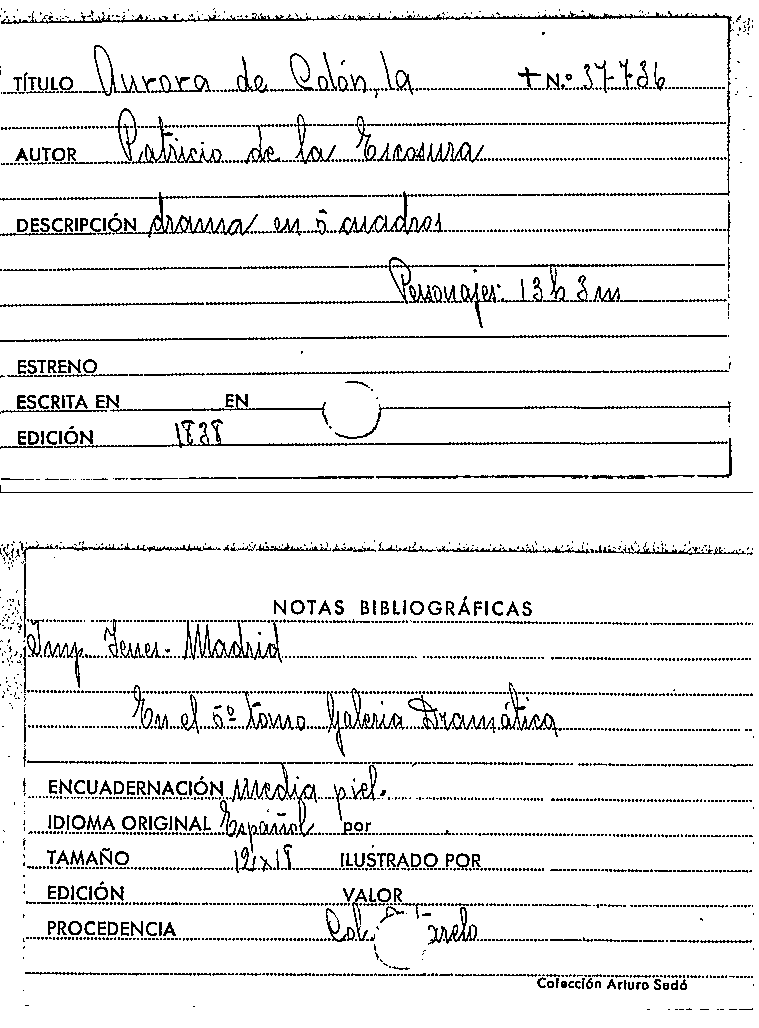 TÍTULO Aurora de Colón, la + N.º 37-736
AUTOR Patricio de la Escosura
DESCRIPCIÓN drama en 5 cuadros
Personajes: 13 h 3 m
ESTRENO
ESCRITA EN EN
EDICIÓN 1838
NOTAS BIBLIOGRÁFICAS
Imp. Madrid
En el 5º tomo Galeria Dramática
ENCUADERNACIÓN Media piel.
IDIOMA ORIGINAL Español por
TAMAÑO 12x18 ILUSTRADO POR
EDICIÓN VALOR
PROCEDENCIA Col.
Colección Arturo Sedó